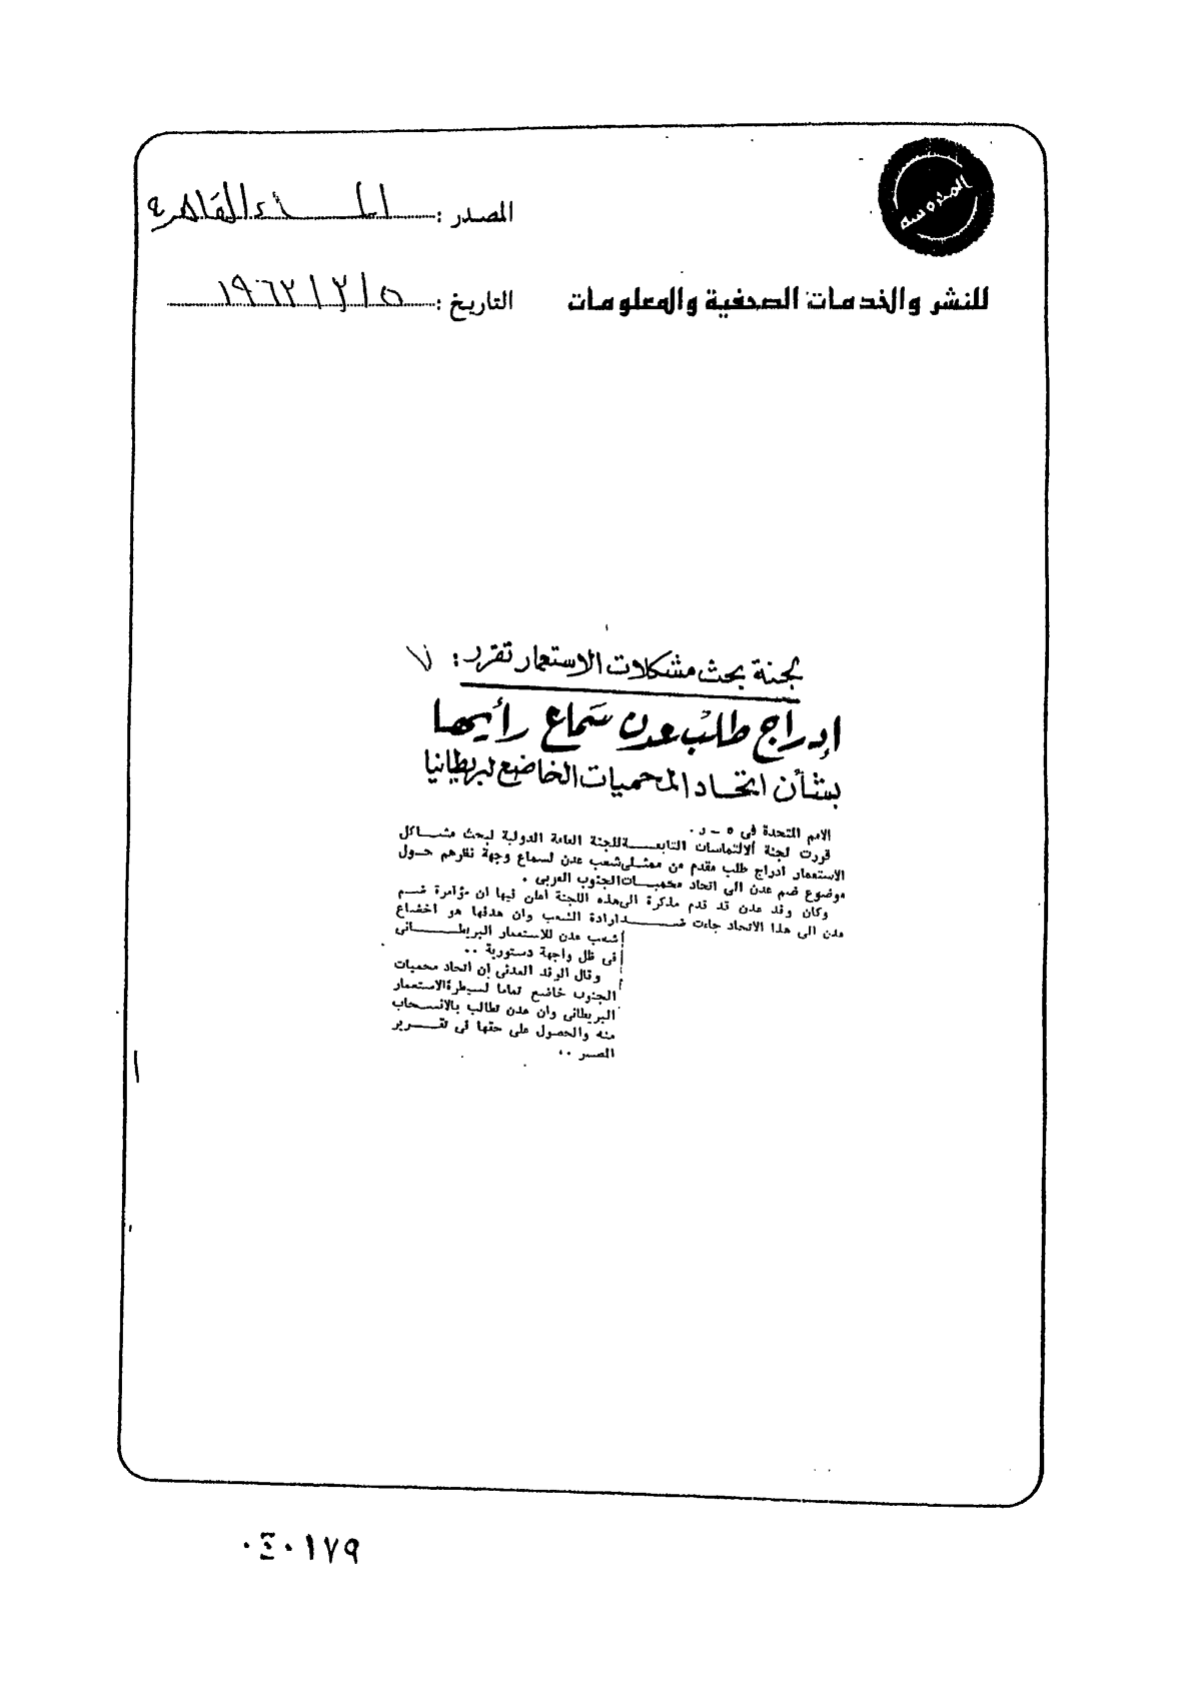 المدوسه
المصدر : المساء القاهرية
للنشر والخدمات الصحفية والمعلومات
التاريخ : ١٩٦٣/٣/٥
لجنة بحث مشكلات الاستعمار تقرر :
إدراج طلب عدن سماع رأيها
بشأن اتحاد المحميات الخاضع لبريطانيا
الامم المتحدة فى ٥ – ر .
قررت لجنة الالتماسات التابعة للجنة العامة الدولية لبحث مشاكل
الاستعمار ادراج طلب مقدم من ممثلى شعب عدن لسماع وجهة نظرهم حول
موضوع ضم عدن الى اتحاد محميات الجنوب العربى .
وكان وفد عدن قد قدم مذكرة الى هذه اللجنة اعلن فيها ان مؤامرة ضم
عدن الى هذا الاتحاد جاءت ضد ارادة الشعب وان هدفها هو اخضاع
شعب عدن للاستعمار البريطانى
فى ظل واجهة دستورية ..
وقال الوفد العدنى ان اتحاد محميات
الجنوب خاضع تماما لسيطرة الاستعمار
البريطانى وان عدن تطالب بالانسحاب
منه والحصول على حقها فى تقرير
المصير ..
٠٤٠١٧٩